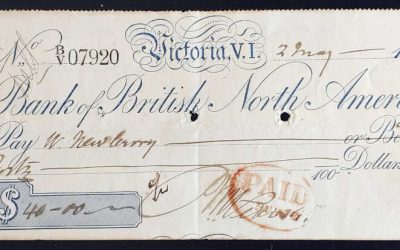 No. B/V 07920 Victoria, V.I. 2 May 1
Bank of British North Amer
Pay W. Newbury or B
Forty 100 Dollar
$ 40-00
PAID